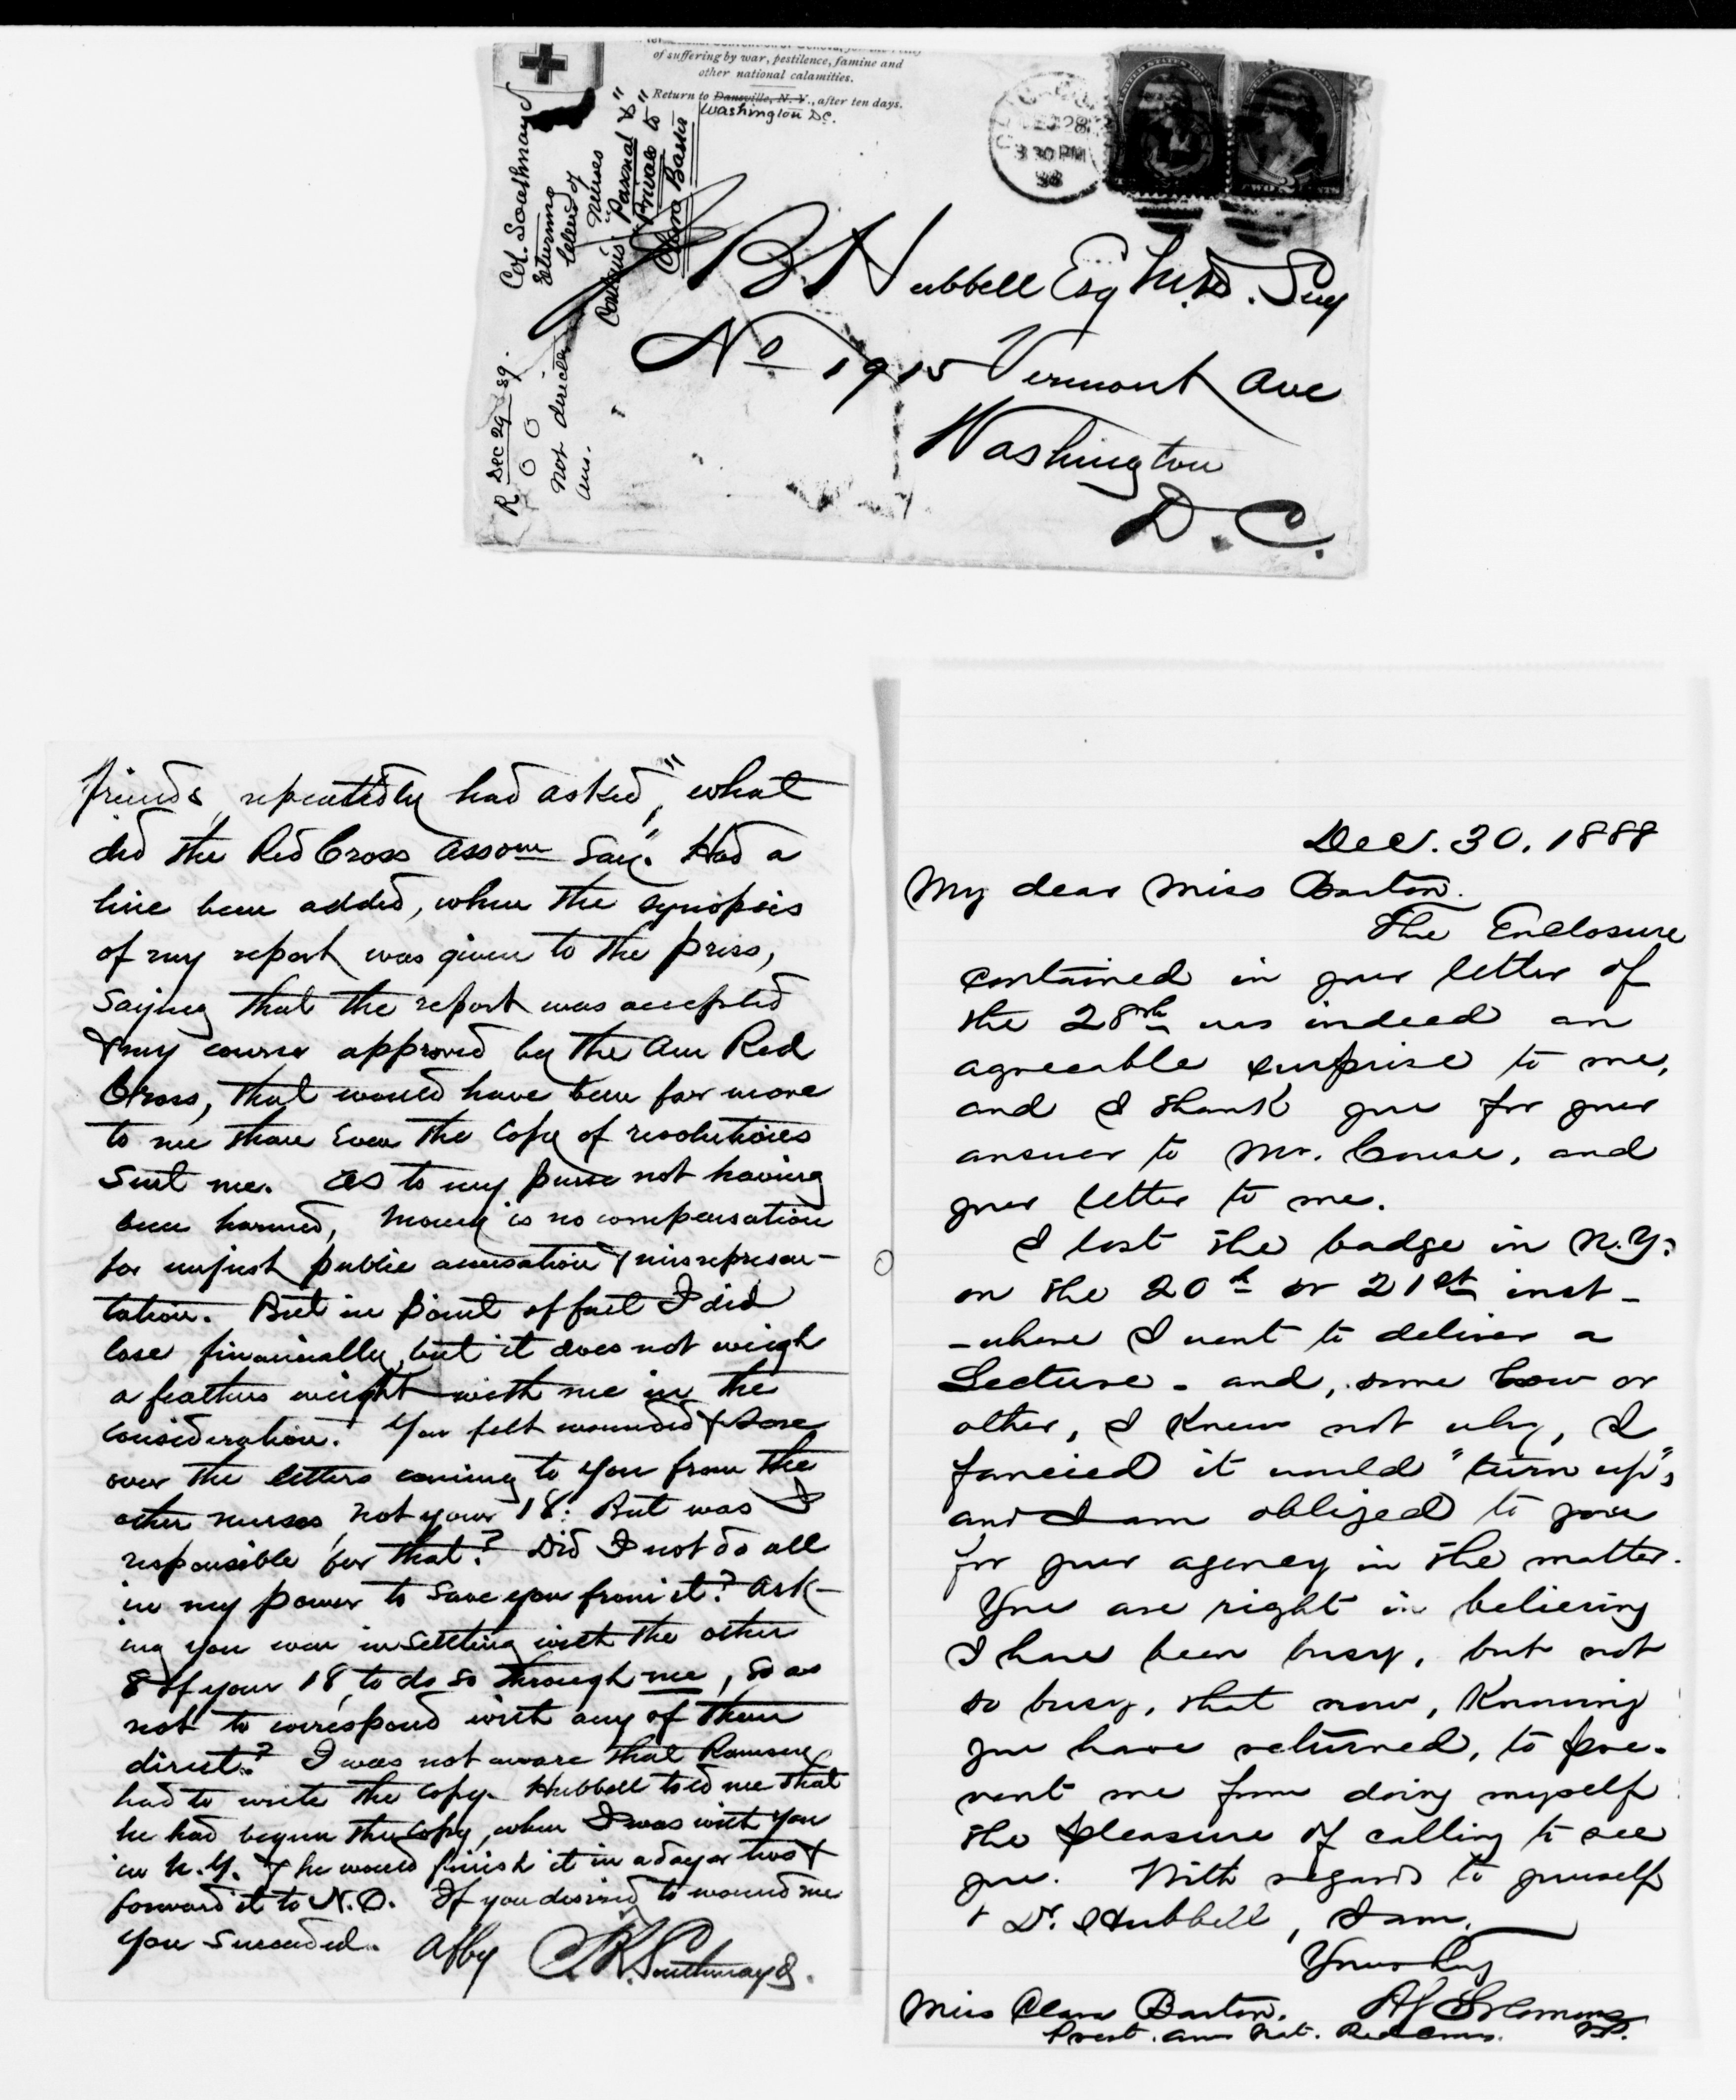 of suffering by war, pestilence, famine and
other national calamities.
Return to Dansville, N.Y., after ten days.
Washington D.C.
Col. Southmayd
returning
of
nurses
Contains "Personal &"
"Private to"
Clara Barton
R Dec 29 89.
Not directed
ans.
DEC 28
3 30 PM
88
UNITED STATES
TWO CENTS
J B Hubbell Esq M.D. Secy
No 1915 Vermont Ave
Washington
D.C.
friends, repeatedly had asked, "what
did the Red Cross Assocn say." Had a
line been added, when the synopsis
of my report was given to the press,
saying that the report was accepted
& my course approved by the Am Red
Cross, that would have been far more
to me than even the copy of resolutions
sent me. As to my purse not having
been harmed, money is no compensation
for unjust public accusation & misrepresen-
tation. But in point of fact I did
lose financially, but it does not weigh
a feathers weight with me in the
consideration. You felt wounded & sore
over the letters coming to you from the
other nurses not your 18: But was I
responsible for that? Did I not do all
in my power to save you from it? Ask-
ing you even in settling with the other
8 of your 18, to do so through me, so as
not to correspond with any of them
direct? I was not aware that
had to write the copy. Hubbell told me that
he had begun the copy, when I was with you
in N.Y. & he would finish it in a day or two &
forward it to N.O. If you desired to wound me
you succeeded. Affly F R. Southmayd.
Dec. 30. 1888
My dear Miss Barton.
The Enclosure
contained in your letter of
the 28th was indeed an
agreeable surprise to me,
and I thank you for your
answer to Mr. , and
your letter to me.
I lost the badge in N.Y.
on the 20th or 21st inst-
-where I went to deliver a
Lecture - and, some how or
other, I knew not why, I
fancied it would "turn up",
and I am obliged to you
for your agency in the matter.
You are right in believing
I have been busy, but not
so busy, that now, knowing
you have returned, to pre-
vent me from doing myself
the pleasure of calling to see
you. With regards to yourself
& Dr. Hubbell, I am,
Yours truly
A S Solomons
V.P.
Miss Clara Barton.
Prest. Am Nat. Red Cross.